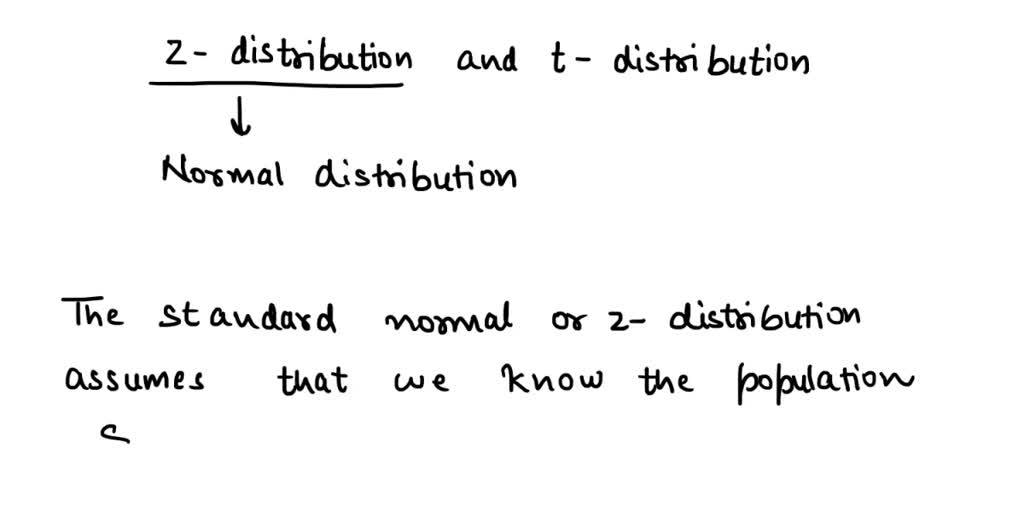 z- distribution and t- distribution
Normal distribution
The standard normal or z- distribution
assumes that we know the population
s